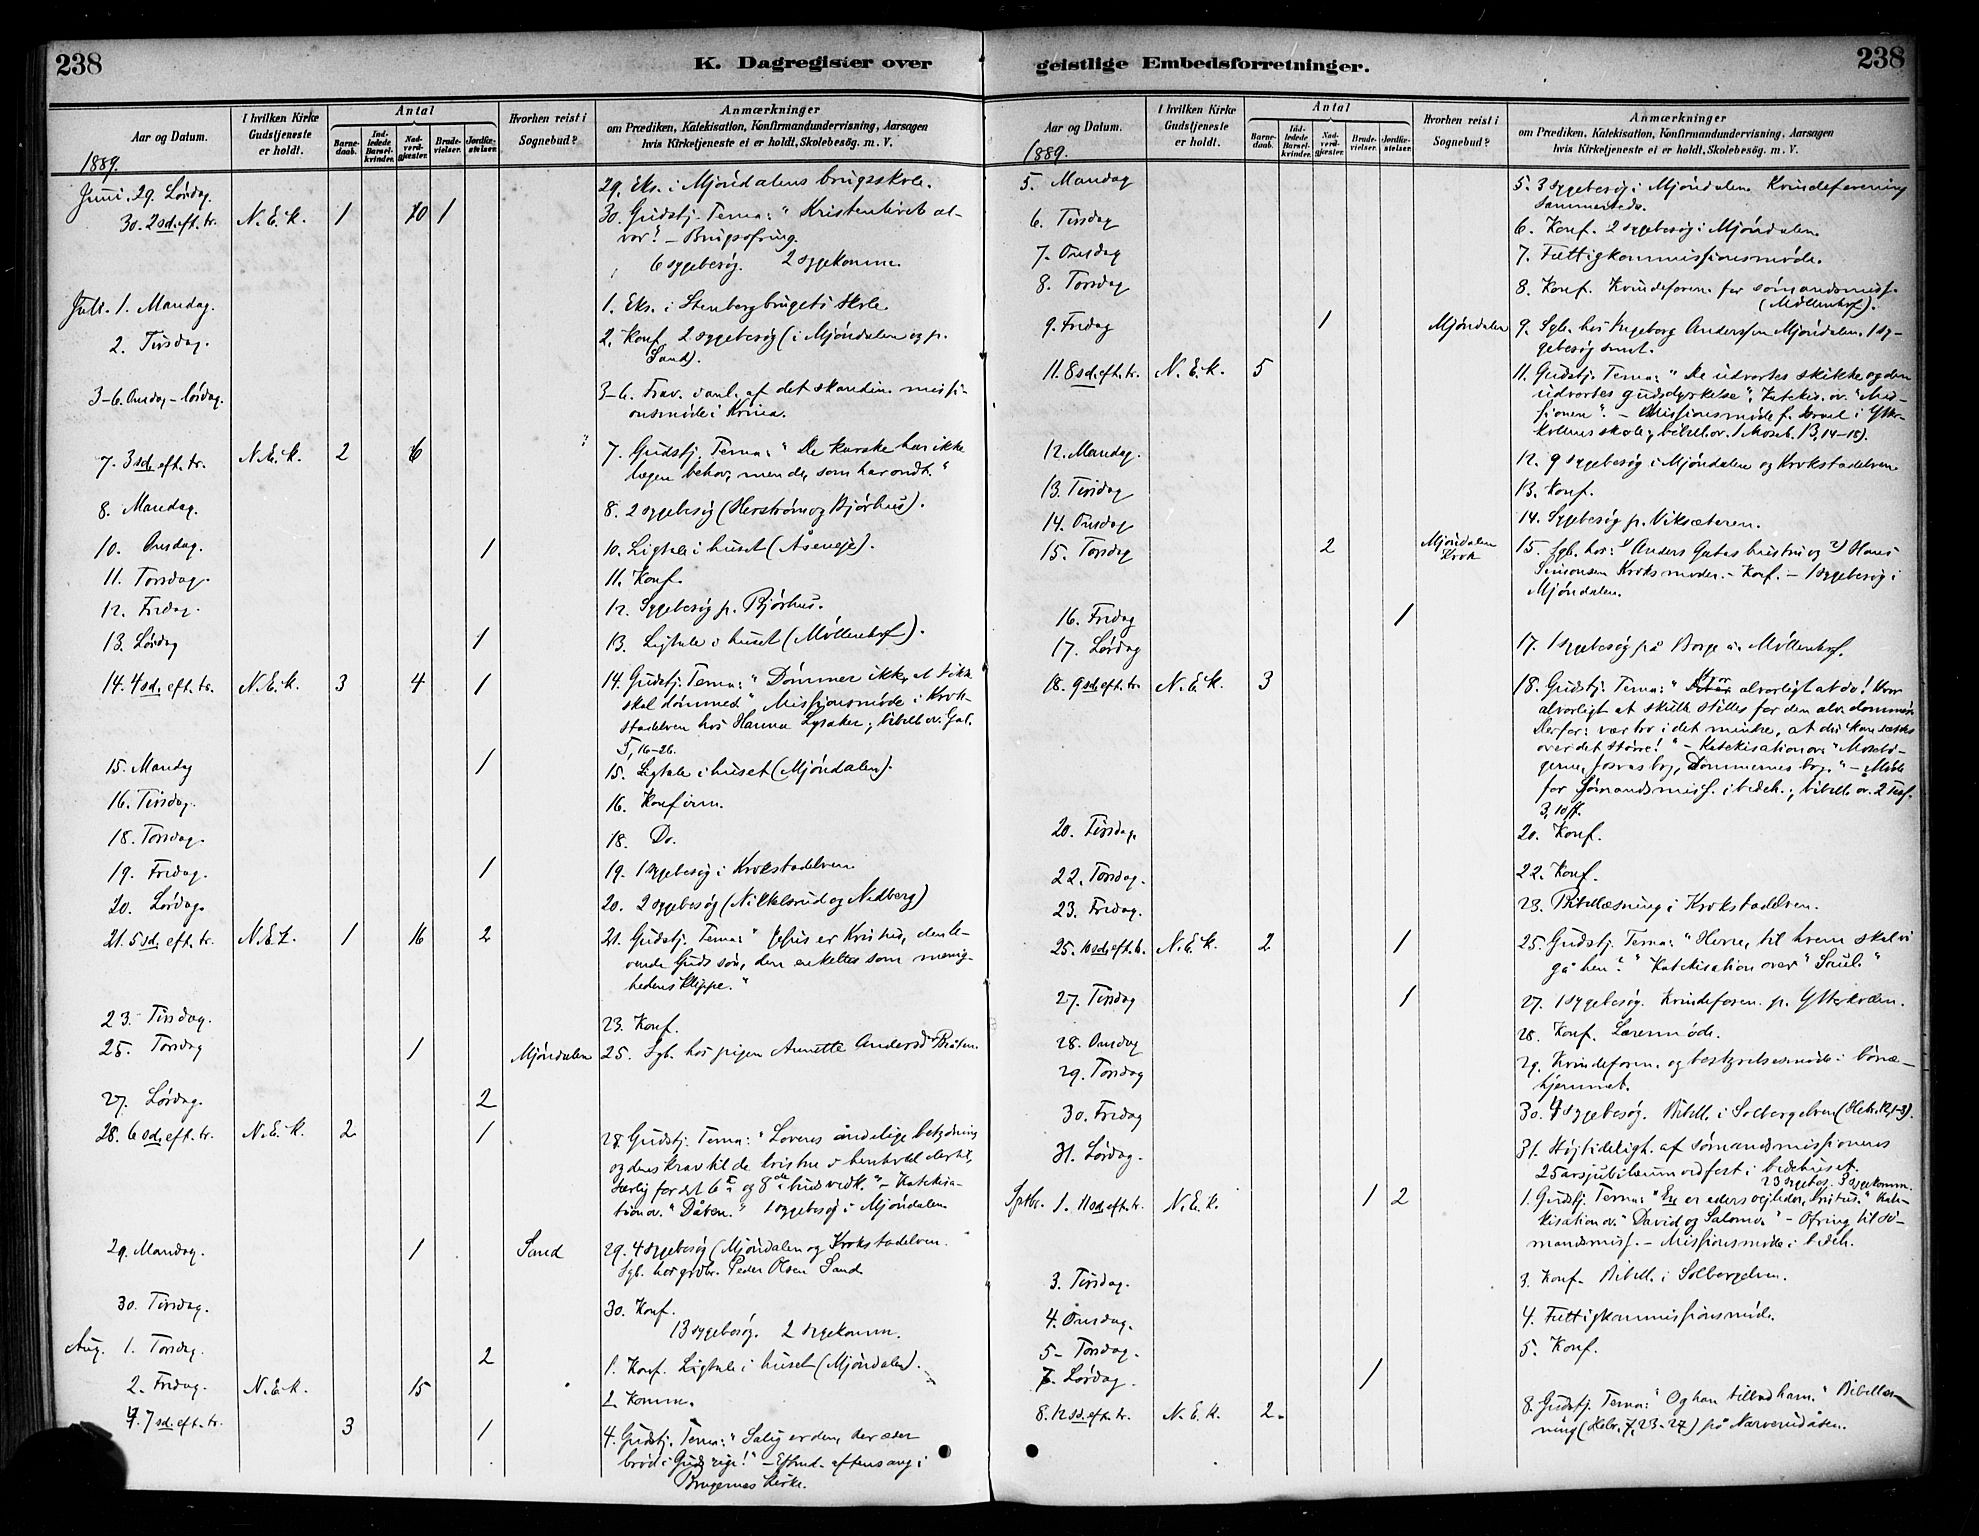 238
K. Dagregister over
Aar og Datum.
I hvilken Kirke Gudstjeneste er holdt.
Antal
Barnedaab.
Indledede Barselkvinder.
Nadverdgjæster.
Brudevielser.
Jordfæstelser.
Hvorhen reist i Sognebud?
Anmærkninger
om Prædiken, Katekisation, Konfirmandundervisning, Aarsagen
hvis Kirketjeneste ei er holdt, Skolebesøg. m. V.
1889.
Juni. 29. Lørdag. 29. Eks. i Mjøndalens brugsskole.
30. 2 sd. eft. tr. N. E. k. 1 10 1 30. Gudstj. Tema: "Kristenlivets al-
vor." – Brugsofring.
6 sygebesøg. 2 sygekomm.
Juli. 1. Mandag. 1. Eks. i Stenbergbrugets skole
2. Tirsdag. 2. Konf. 2 sygebesøg (i Mjøndalen og p.
Sand).
3–6. Onsdag – lørdag. 3–6. Frav. i anl. af det skandin. missi-
onsmøde i Kr.nia.
7. 3 sd. eft. tr. N. E. k. 2 6 7. Gudstj. Tema: "De karske har ikke
lægen behov, men de, som har ondt."
8. Mandag. 8. 2 sygebesøg (Herstrøm og Bjørhus).
10. Onsdag. 1 10. Ligtale i huset (Åseneje).
11. Torsdag. 11. Konf.
12. Fredag. 12. Sygebesøg p. Bjørhus.
13. Lørdag 1 13. Ligtale i huset (Møllenhof).
14. 4 sd. eft. tr. N. E. k. 3 4 1 14. Gudstj. Tema: "Dømmer ikke, at I ikke
skal dømmes." Missionsmøde i Krok-
stadelven hos Hanna Lysaker; bibell. ov. Gal.
5, 16–26.
15. Mandag 1 15. Ligtale i huset (Mjøndalen).
16. Tirsdag. 16. Konfirm.
18. Torsdag. 18. Do.
19. Fredag. 1 19. 1 sygebesøg i Krokstadelven
20. Lørdag. 20. 2 sygebesøg (Nikkelsrud og Nedberg)
21. 5 sd. eft. tr. N. E. k. 1 16 2 21. Gudstj. Tema: "Jesus er Kristus, den le-
vende Guds søn, den enkeltes som menig-
hedens klippe."
23. Tirsdag. 23. Konf.
25. Torsdag 1 Mjøndalen 25. Sgb. hos pigen Annette Andersd. Bråten.
27. Lørdag. 2
28. 6 sd. eft. tr. N. E. k. 2 1 28. Gudstj. Tema: "Lovens åndelige betydning
og dens krav til de kristne i henhold dertil,
særlig for det 6te og 8de buds vedk." – Katekisa-
tion ov. "Dåben." 1 sygebesøg i Mjøndalen
29. Mandag. 1 Sand 29. 4 sygebesøg (Mjøndalen og Krokstadelven.
Sgb. hos grdbr. Peder Olsen Sand.
30. Tirsdag. 30. Konf.
13 sygebesøg. 2 sygekomm.
Aug. 1. Torsdag. 2 1. Konf. Ligtale i huset (Mjøndalen).
2. Fredag. N. E. k. 15 2. Komm.
4. 7 sd. eft. tr. 3 1 4. Gudstj. Tema: "Salig er den, der æder
brød i Guds rige!" – Eftmd. aftensang i
Bragernes kirke.
238
geistlige Embedsforretninger.
Aar og Datum.
I hvilken Kirke Gudstjeneste er holdt.
Antal
Barnedaab.
Indledede Barselkvinder.
Nadverdgjæster.
Brudevielser.
Jordfæstelser.
Hvorhen reist i Sognebud?
Anmærkninger
om Prædiken, Katekisation, Konfirmandundervisning, Aarsagen
hvis Kirketjeneste ei er holdt, Skolebesøg. m. V.
1889.
5. Mandag 5. 3 sygebesøg i Mjøndalen. Kvindeforening
sammesteds.
6. Tirsdag 6. Konf. 2 sygebesøg i Mjøndalen.
7. Onsdag 7. Fattigkommissionsmøde.
8. Torsdag 8. Konf. Kvindeforen. for sømandsmiss.
(Møllenhof).
9. Fredag 1 Mjøndalen 9. Sgb. hos Ingeborg Anderssen Mjøndalen. 1 sy-
gebesøg smst.
11. 8 sd. eft. tr. N. E. k. 5 11. Gudstj. Tema: "De udvortes skikke og den
udvortes gudsdyrkelse", Katekis. ov. "Mis-
sionen". – Missionsmøde f. Israel i Ytter-
kollens skole; bibell. ov. 1 Moseb. 13, 14–18).
12. Mandag. 12. 9 sygebesøg i Mjøndalen og Krokstadelven
13. Tirsdag 13. Konf.
14. Onsdag 14. Sygebesøg p. Viksæteren.
15. Torsdag 2 Mjøndalen Krok 15. Sgb. hos: 1) Anders Gutus hustru og 2) Hans
Simonsen Kroks moder. – Konf. – 1 sygebesøg i
Mjøndalen.
16. Fredag 1
17. Lørdag 17. 1 sygebesøg på Borge u. Møllenhof.
18. 9 sd. eft. tr. N. E. k. 3 18. Gudstj. Tema: "Hvor alvorligt at dø! Hvor
alvorligt at skulle stilles for den alv. dommer!
Derfor: vær tro i det mindre, at du kan sættes
over det større!" – Katekisation ov. "Mosebø-
gerne, Josvas bog, Dommernes bog." – Møde
for Sømandsmiss. i bedeh.; bibell. ov. 2 Tess.
3, 10ff.
20. Tirsdag. 20. Konf.
22. Torsdag. 22. Konf.
23. Fredag. 23. Bibellæsning i Krokstadelven.
25. 10 sd. eft. tr. N. E. k. 2 1 25. Gudstj. Tema: "Herre, til hvem skal vi
gå hen?" Katekisation over "Saul."
27. Tirsdag 1 27. 1 sygebesøg. Kvindeforen. p. Ytterkollen.
28. Onsdag 28. Konf. Lærermøde.
29. Torsdag 29. Kvindeforen. og bestyrelsesmøde i børne-
hjemmet.
30. Fredag 30. 4 sygebesøg. Bibell. i Solbergelven (Hebr. 12, 1–3).
31. Lørdag. 31. Højtideligh. af sømandsmissionens
25 årsjubilæum vedfest i bedehuset.
23 sygebes. 3 sygekomm.
Sptbr. 1. 11 sd. eft. tr. N. E. k. 1 2 1. Gudstj. Tema: "En er eders vejleder, Kristus." Kate-
kisation ov. "David og Salomo." – Ofring til sø-
mandsmiss. – Missionsmøde i bedeh.
3. Tirsdag. 3. Konf. Bibell. i Solbergelven.
4. Onsdag. 4. Fattigkommissionsmøde.
5. Torsdag. 5. Konf.
7. Lørdag. 1
8. 12 sd. eft. tr. N. E. k. 2. 8. Gudstj. Tema: "Og han tilbad ham." Bibellæs-
ning (Hebr. 7, 23–27) på Narverudåsen.